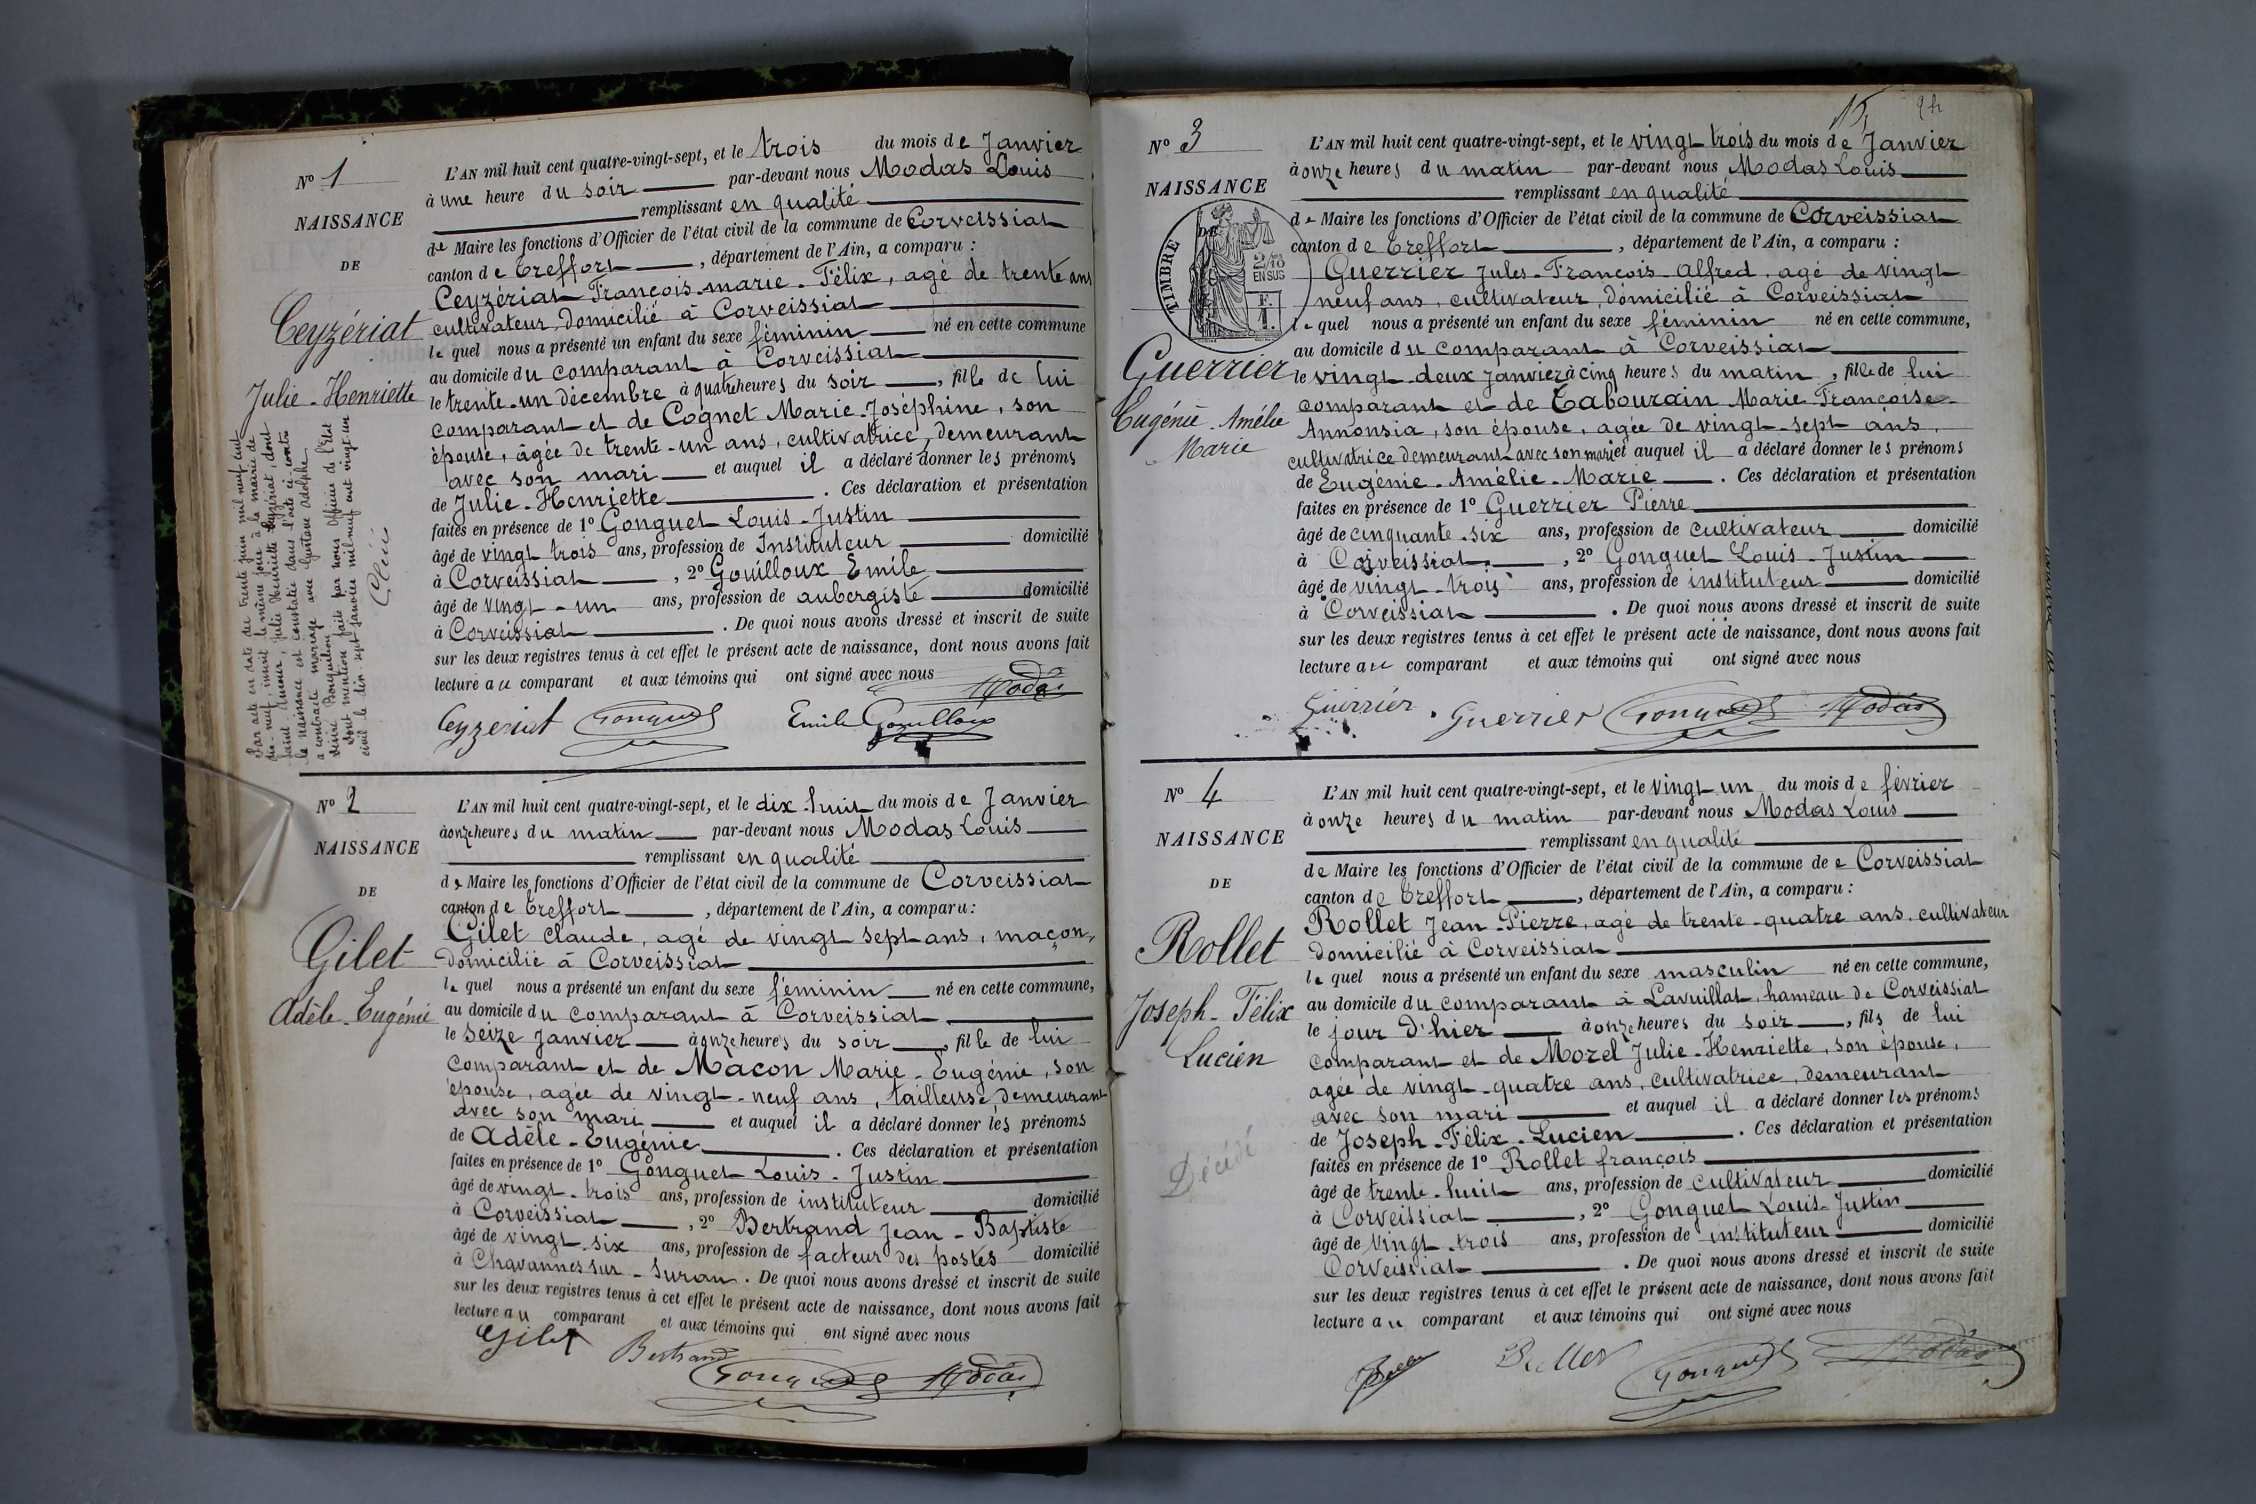 N° 1
NAISSANCE
DE
Ceyzériat
Julie-Henriette
Par acte en date du trente juin mil neuf cent
dix-neuf, inscrit le même jour à la mairie de
Saint-Amour, Julie Henriette Ceyzériat, dont
la naissance est constatée dans l'acte ci-contre
a contracté mariage avec Gustave Adolphe
Dont mention faite par nous Officier de l'Etat
civil le dix-sept janvier mil neuf cent vingt un
L'AN mil huit cent quatre-vingt-sept, et le trois du mois de Janvier
à une heure du soir par-devant nous Modas Louis
remplissant en qualité
de Maire les fonctions d'Officier de l'état civil de la commune de Corveissiat
canton de Treffort, département de l'Ain, a comparu :
Ceyzériat François-marie-Félix, agé de trente ans
cultivateur, domicilié à Corveissiat
le quel nous a présenté un enfant du sexe féminin né en cette commune
au domicile du comparant à Corveissiat
le trente-un décembre à quatre heures du soir, fille de lui
comparant et de Cognet Marie-Joséphine, son
épouse, âgée de trente-un ans, cultivatrice, demeurant
avec son mari et auquel il a déclaré donner les prénoms
de Julie-Henriette. Ces déclaration et présentation
faites en présence de 1° Gonguet Louis-Justin
âgé de vingt trois ans, profession de Instituteur domicilié
à Corveissiat, 2° Gouilloux Emile
âgé de vingt-un ans, profession de aubergiste domicilié
à Corveissiat. De quoi nous avons dressé et inscrit de suite
sur les deux registres tenus à cet effet le présent acte de naissance, dont nous avons fait
lecture au comparant et aux témoins qui ont signé avec nous
Modas
Ceyzeriat Gonguet Emile Gouilloux
N° 2
NAISSANCE
DE
Gilet
Adèle-Eugénie
L'AN mil huit cent quatre-vingt-sept, et le dix-huit du mois de Janvier
à onze heures du matin par-devant nous Modas Louis
remplissant en qualité
de Maire les fonctions d'Officier de l'état civil de la commune de Corveissiat
canton de Treffort, département de l'Ain, a comparu :
Gilet Claude, agé de vingt sept ans, maçon,
domicilié à Corveissiat
le quel nous a présenté un enfant du sexe féminin né en cette commune,
au domicile du comparant à Corveissiat
le seize Janvier à onze heures du soir, fille de lui
comparant et de Macon Marie-Eugénie, son
épouse, agée de vingt-neuf ans, tailleuse, demeurant
avec son mari et auquel il a déclaré donner les prénoms
de Adèle-Eugénie. Ces déclaration et présentation
faites en présence de 1° Gonguet Louis-Justin
âgé de vingt-trois ans, profession de instituteur domicilié
à Corveissiat, 2° Bertrand Jean-Baptiste
âgé de vingt-six ans, profession de facteur des postes domicilié
à Chavannes sur-Suran. De quoi nous avons dressé et inscrit de suite
sur les deux registres tenus à cet effet le présent acte de naissance, dont nous avons fait
lecture au comparant et aux témoins qui ont signé avec nous
Gilet Bertrand
Gonguet Modas
15
N° 3
NAISSANCE
DE
TIMBRE
2/10
EN SUS
F.
1.
Guerrier
Eugénie-Amélie
Marie
L'AN mil huit cent quatre-vingt-sept, et le vingt trois du mois de Janvier
à onze heures du matin par-devant nous Modas Louis
remplissant en qualité
de Maire les fonctions d'Officier de l'état civil de la commune de Corveissiat
canton de Treffort, département de l'Ain, a comparu :
Guerrier Jules-François-Alfred, agé de vingt
neuf ans, cultivateur, domicilié à Corveissiat
le quel nous a présenté un enfant du sexe féminin né en cette commune,
au domicile du comparant à Corveissiat
le vingt-deux Janvier à cinq heures du matin, fille de lui
comparant et de Tabourain Marie Françoise
Annonsia, son épouse, agée de vingt-sept ans,
cultivatrice demeurant avec son mari et auquel il a déclaré donner les prénoms
de Eugénie-Amélie-Marie. Ces déclaration et présentation
faites en présence de 1° Guerrier Pierre
âgé de cinquante-six ans, profession de cultivateur domicilié
à Corveissiat, 2° Gonguet Louis-Justin
âgé de vingt-trois ans, profession de instituteur domicilié
à Corveissiat. De quoi nous avons dressé et inscrit de suite
sur les deux registres tenus à cet effet le présent acte de naissance, dont nous avons fait
lecture au comparant et aux témoins qui ont signé avec nous
Guerrier Guerrier Gonguet Modas
N° 4
NAISSANCE
DE
Rollet
Joseph-Félix
Lucien
Décédé
L'AN mil huit cent quatre-vingt-sept, et le vingt-un du mois de février
à onze heures du matin par-devant nous Modas Louis
remplissant en qualité
de Maire les fonctions d'Officier de l'état civil de la commune de e Corveissiat
canton de Treffort, département de l'Ain, a comparu :
Rollet Jean-Pierre, agé de trente-quatre ans, cultivateur
domicilié à Corveissiat
le quel nous a présenté un enfant du sexe masculin né en cette commune,
au domicile du comparant à Lavuillat, hameau de Corveissiat
le jour d'hier à onze heures du soir, fils de lui
comparant et de Morel Julie-Henriette, son épouse,
agée de vingt-quatre ans, cultivatrice, demeurant
avec son mari et auquel il a déclaré donner les prénoms
de Joseph-Félix-Lucien. Ces déclaration et présentation
faites en présence de 1° Rollet françois
âgé de trente-huit ans, profession de cultivateur domicilié
à Corveissiat, 2° Gonguet Louis-Justin
âgé de vingt-trois ans, profession de instituteur domicilié
Corveissiat. De quoi nous avons dressé et inscrit de suite
sur les deux registres tenus à cet effet le présent acte de naissance, dont nous avons fait
lecture au comparant et aux témoins qui ont signé avec nous
Rollet Gonguet Modas